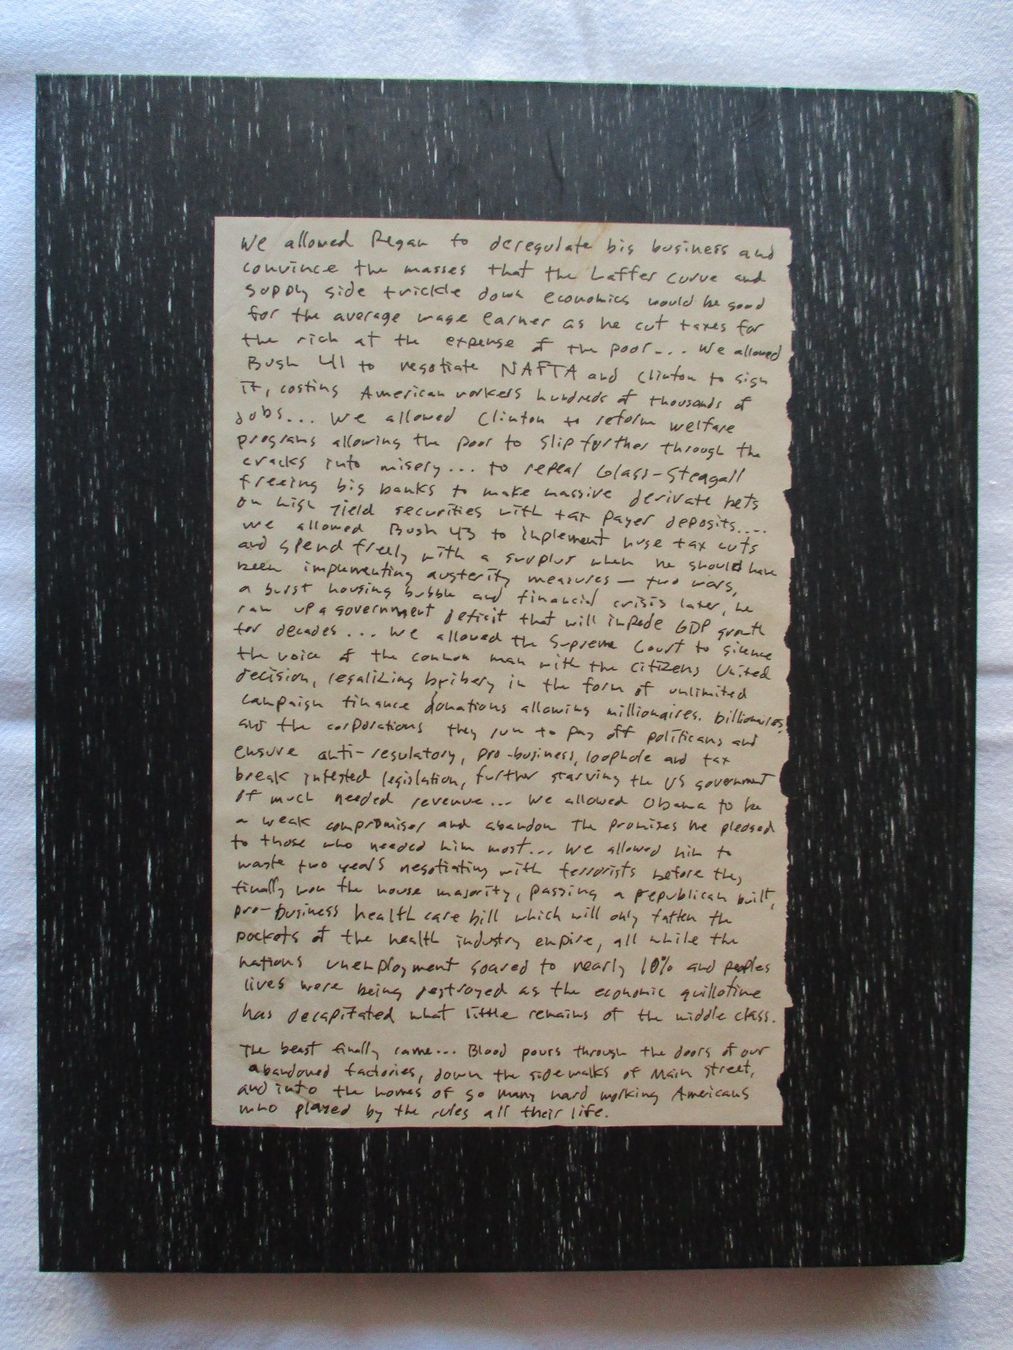 We allowed Regan to deregulate big business and
convince the masses that the Laffer curve and
supply side trickle down economics would be good
for the average wage earner as he cut taxes for
the rich at the expense of the poor... We allowed
Bush 41 to negotiate NAFTA and Clinton to sign
it, costing American workers hundreds of thousands of
jobs... We allowed Clinton to reform welfare
programs allowing the poor to slip further through the
cracks into misery... to repeal Glass-Steagall
freeing big banks to make massive derivate bets
on high yield securities with tax payer deposits....
we allowed Bush 43 to implement huge tax cuts
and spend freely with a surplus when he should have
been implementing austerity measures - two wars,
a burst housing bubble and financial crisis later, he
ran up a government deficit that will impede GDP growth
for decades... We allowed the Supreme Court to silence
the voice of the common man with the Citizens United
decision, legalizing bribery in the form of unlimited
campaign finance donations allowing millionaires, billionaires,
and the corporations they run to pay off politicans and
ensure anti-regulatory, pro-business, loophole and tax
break infested legislation, further starving the US government
of much needed revenue... We allowed Obama to be
a weak compromiser and abandon the promises he pledged
to those who needed him most... We allowed him to
waste two years negotiating with terrorists before they
finally won the house majority, passing a republican built,
pro-business health care bill which will only fatten the
pockets of the health industry empire, all while the
nations unemployment soared to nearly 10% and peoples
lives were being destroyed as the economic guillotine
has decapitated what little remains of the middle class.
The beast finally came... Blood pours through the doors of our
abandoned factories, down the sidewalks of Main Street,
and into the homes of so many hard working Americans
who played by the rules all their life.